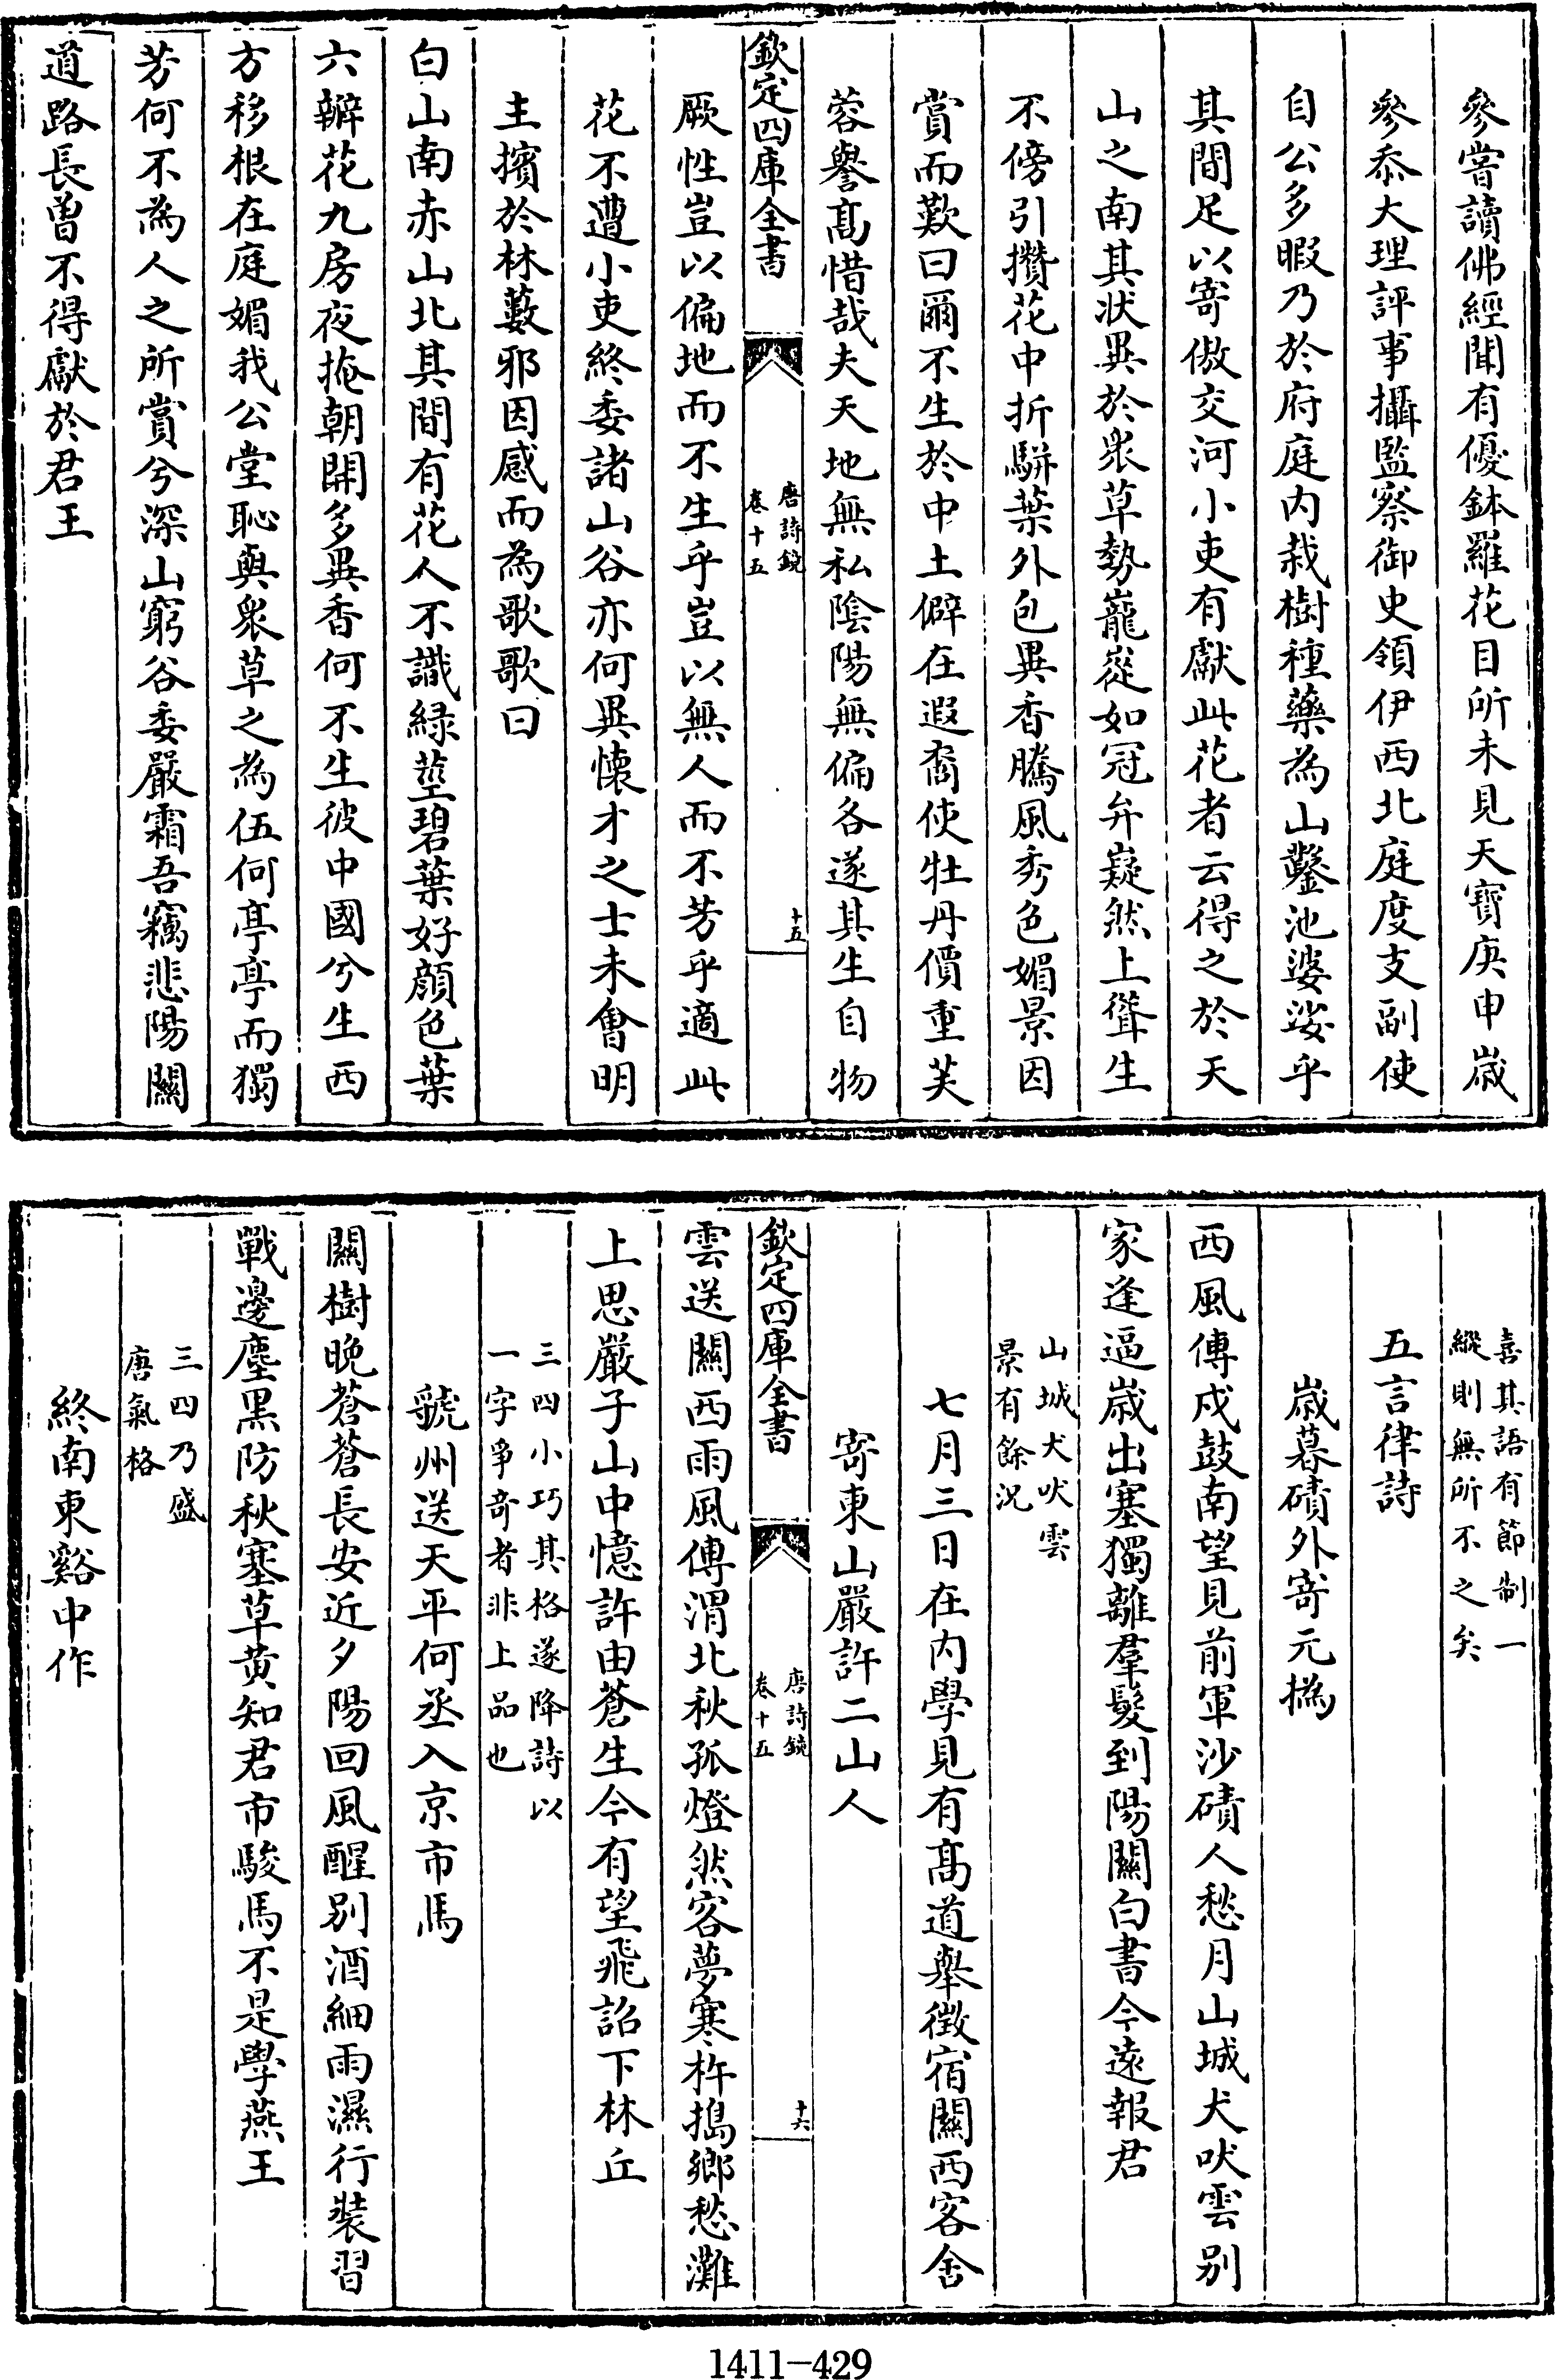 參嘗讀佛經聞有優鉢羅花目所未見天寶庚申嵗
參忝大理評事攝監察御史領伊西北庭度支副使
自公多暇乃於府庭内栽樹種藥為山鑿池婆娑乎
其間足以寄傲交河小吏有獻此花者云得之於天
山之南其状異於衆草勢巃嵸如冠弁嶷然上聳生
不傍引攢花中折駢葉外包異香騰風秀色媚景因
賞而歎曰爾不生於中土僻在遐裔使牡丹價重芙
蓉譽髙惜哉夫天地無私陰陽無偏各遂其生自物
欽定四庫全書
唐詩鏡
卷十五
十五
厥性豈以偏地而不生乎豈以無人而不芳乎適此
花不遭小吏終委諸山谷亦何異懷才之士未會明
主擯於林藪邪因感而為歌歌曰
白山南赤山北其間有花人不識緑莖碧葉好顔色葉
六瓣花九房夜掩朝開多異香何不生彼中國兮生西
方移根在庭媚我公堂恥與衆草之為伍何亭亭而獨
芳何不為人之所賞兮深山窮谷委嚴霜吾竊悲陽關
道路長曾不得獻於君王
喜其語有節制一
縱則無所不之矣
五言律詩
嵗暮磧外寄元撝
西風傳戍鼓南望見前軍沙磧人愁月山城犬吠雲别
家逢逼嵗出塞獨離羣髮到陽關白書今遠報君
山城犬吠雲
景有餘況
七月三日在内學見有髙道舉徵宿關西客舍
寄東山嚴許二山人
雲送關西雨風傳渭北秋孤燈然客夢寒杵搗鄉愁灘
欽定四庫全書
唐詩鏡
卷十五
十六
上思嚴子山中憶許由蒼生今有望飛詔下林丘
三四小巧其格遂降詩以
一字爭竒者非上品也
虢州送天平何丞入京市馬
關樹晚蒼蒼長安近夕陽回風醒别酒細雨濕行裝習
戰邊塵黒防秋塞草黄知君市駿馬不是學燕王
三四乃盛
唐氣格
終南東谿中作
1411-429